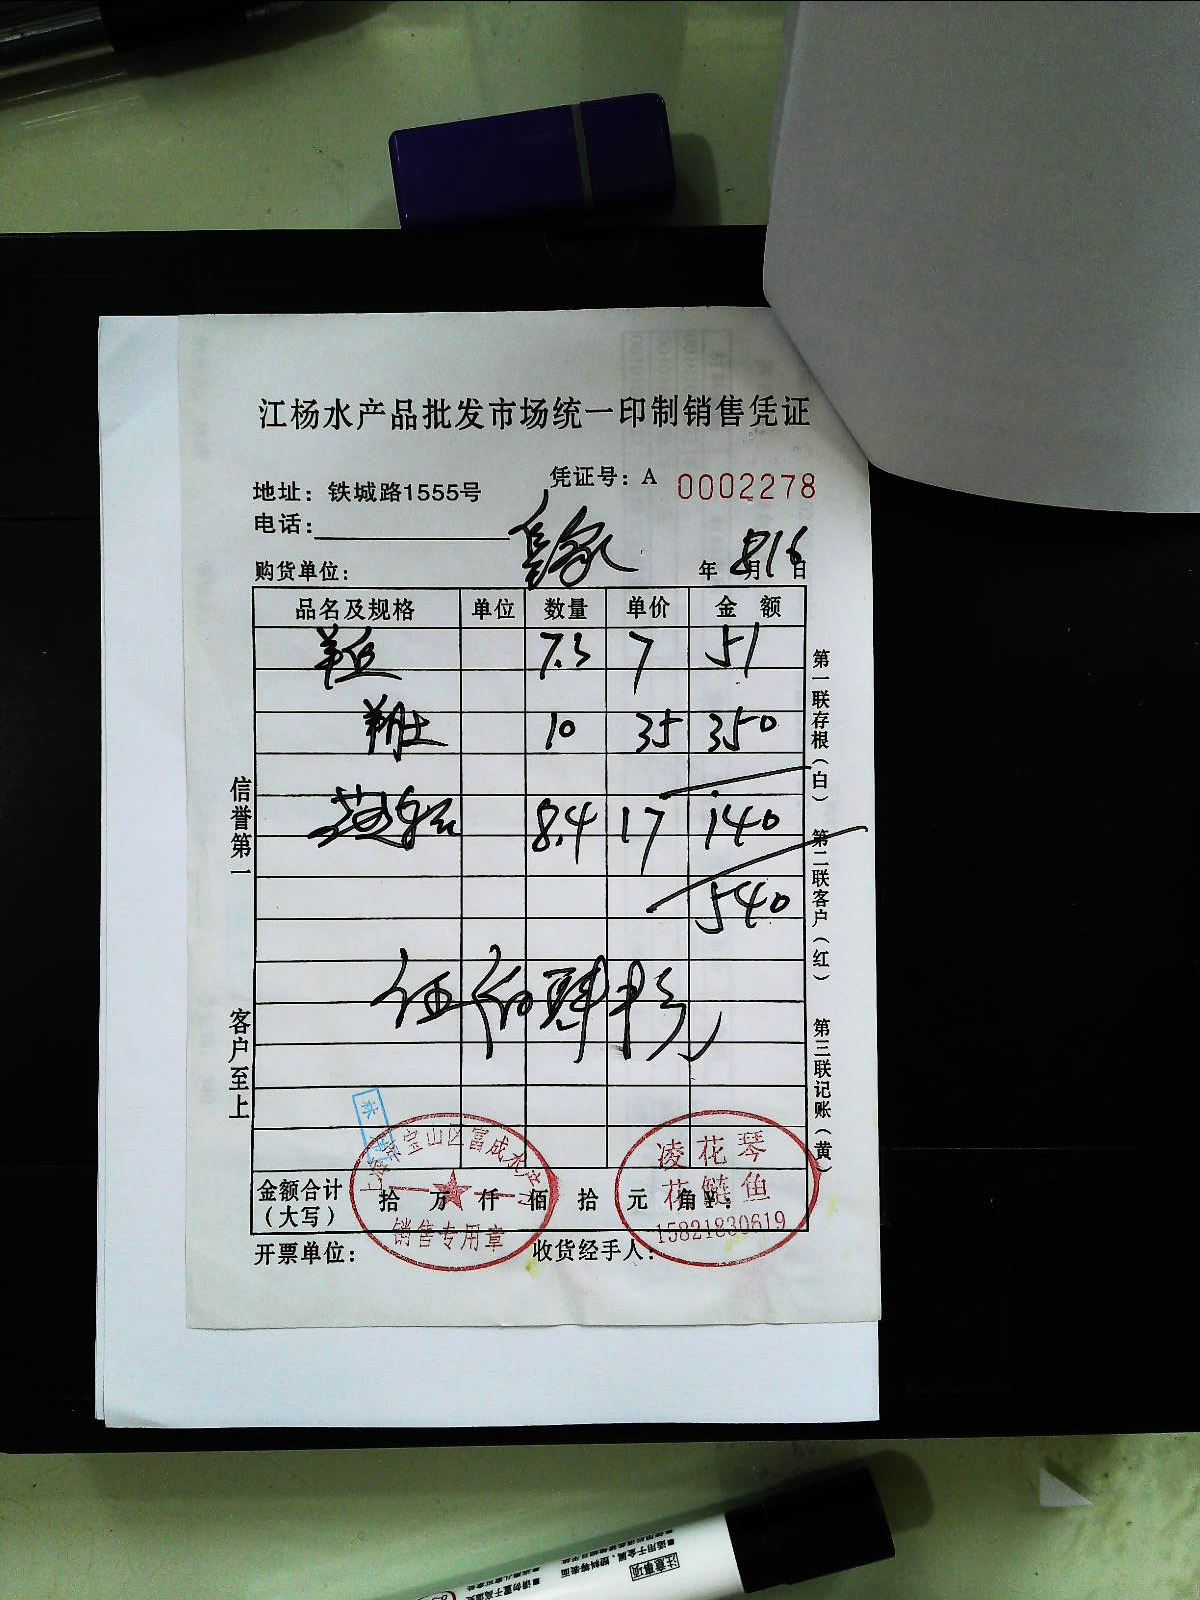 江杨水产品批发市场统一印制销售凭证
凭证号：A 0002278
地址：铁城路1555号
电话：
购货单位： 年 8月16日
品名及规格 单位 数量 单价 金额
7.3 7 51
10 35 350
8.4 17 140
540
伍佰肆十元
信誉第一
客户至上
第一联存根（白）
第二联客户（红）
第三联记账（黄）
林
宝山区富成水产
销售专用章
凌花琴
花鲢鱼
15821830619
金额合计（大写） 拾 万 仟 佰 拾 元 角 ¥：
开票单位： 收货经手人：
注意事项
■适用于金属、塑料等表面
■请勿置于高温处